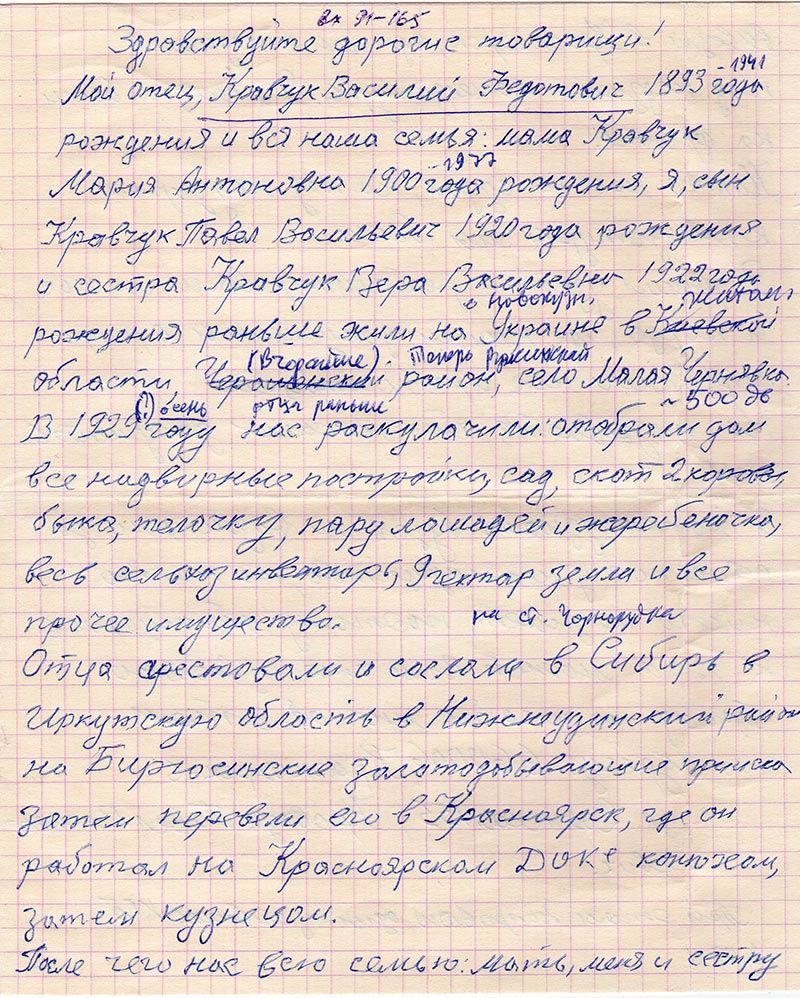 вх 91-165
Здравствуйте дорогие товарищи!
- 1941
Мой отец, Кравчук Василий Федотович 1893 года
рождения и вся наша семья: мама Кравчук
- 1977
Мария Антоновна 1900 года рождения, я, сын
Кравчук Павел Васильевич 1920 года рождения
и сестра Кравчук Вера Васильевна 1922 года
Житом.
рождения раньше жили на Украине в Киевской
(Вчорайше). Теперь Ружинский
области район, село Малая Чернявка.
(?) осень отца раньше ~ 500 дв
В 1929 году нас раскулачили: отобрали дом
все надвирные постройки, сад, скот 2 коровы,
быка, телочку, пару лошадей и жеребеночка,
весь сельхозинвентарь, 9 гектар земли и все
прочее имущество. на ст. Чорнорудка
Отца арестовали и сослали в Сибирь в
Иркутскую область в Нижнеудинский район
на Бирюсинские золотодобывающие прииска
Затем перевели его в Красноярск, где он
работал на Красноярском ДОКе конюхом,
затем кузнецом.
После чего нас всю семью: мать, меня и сестру